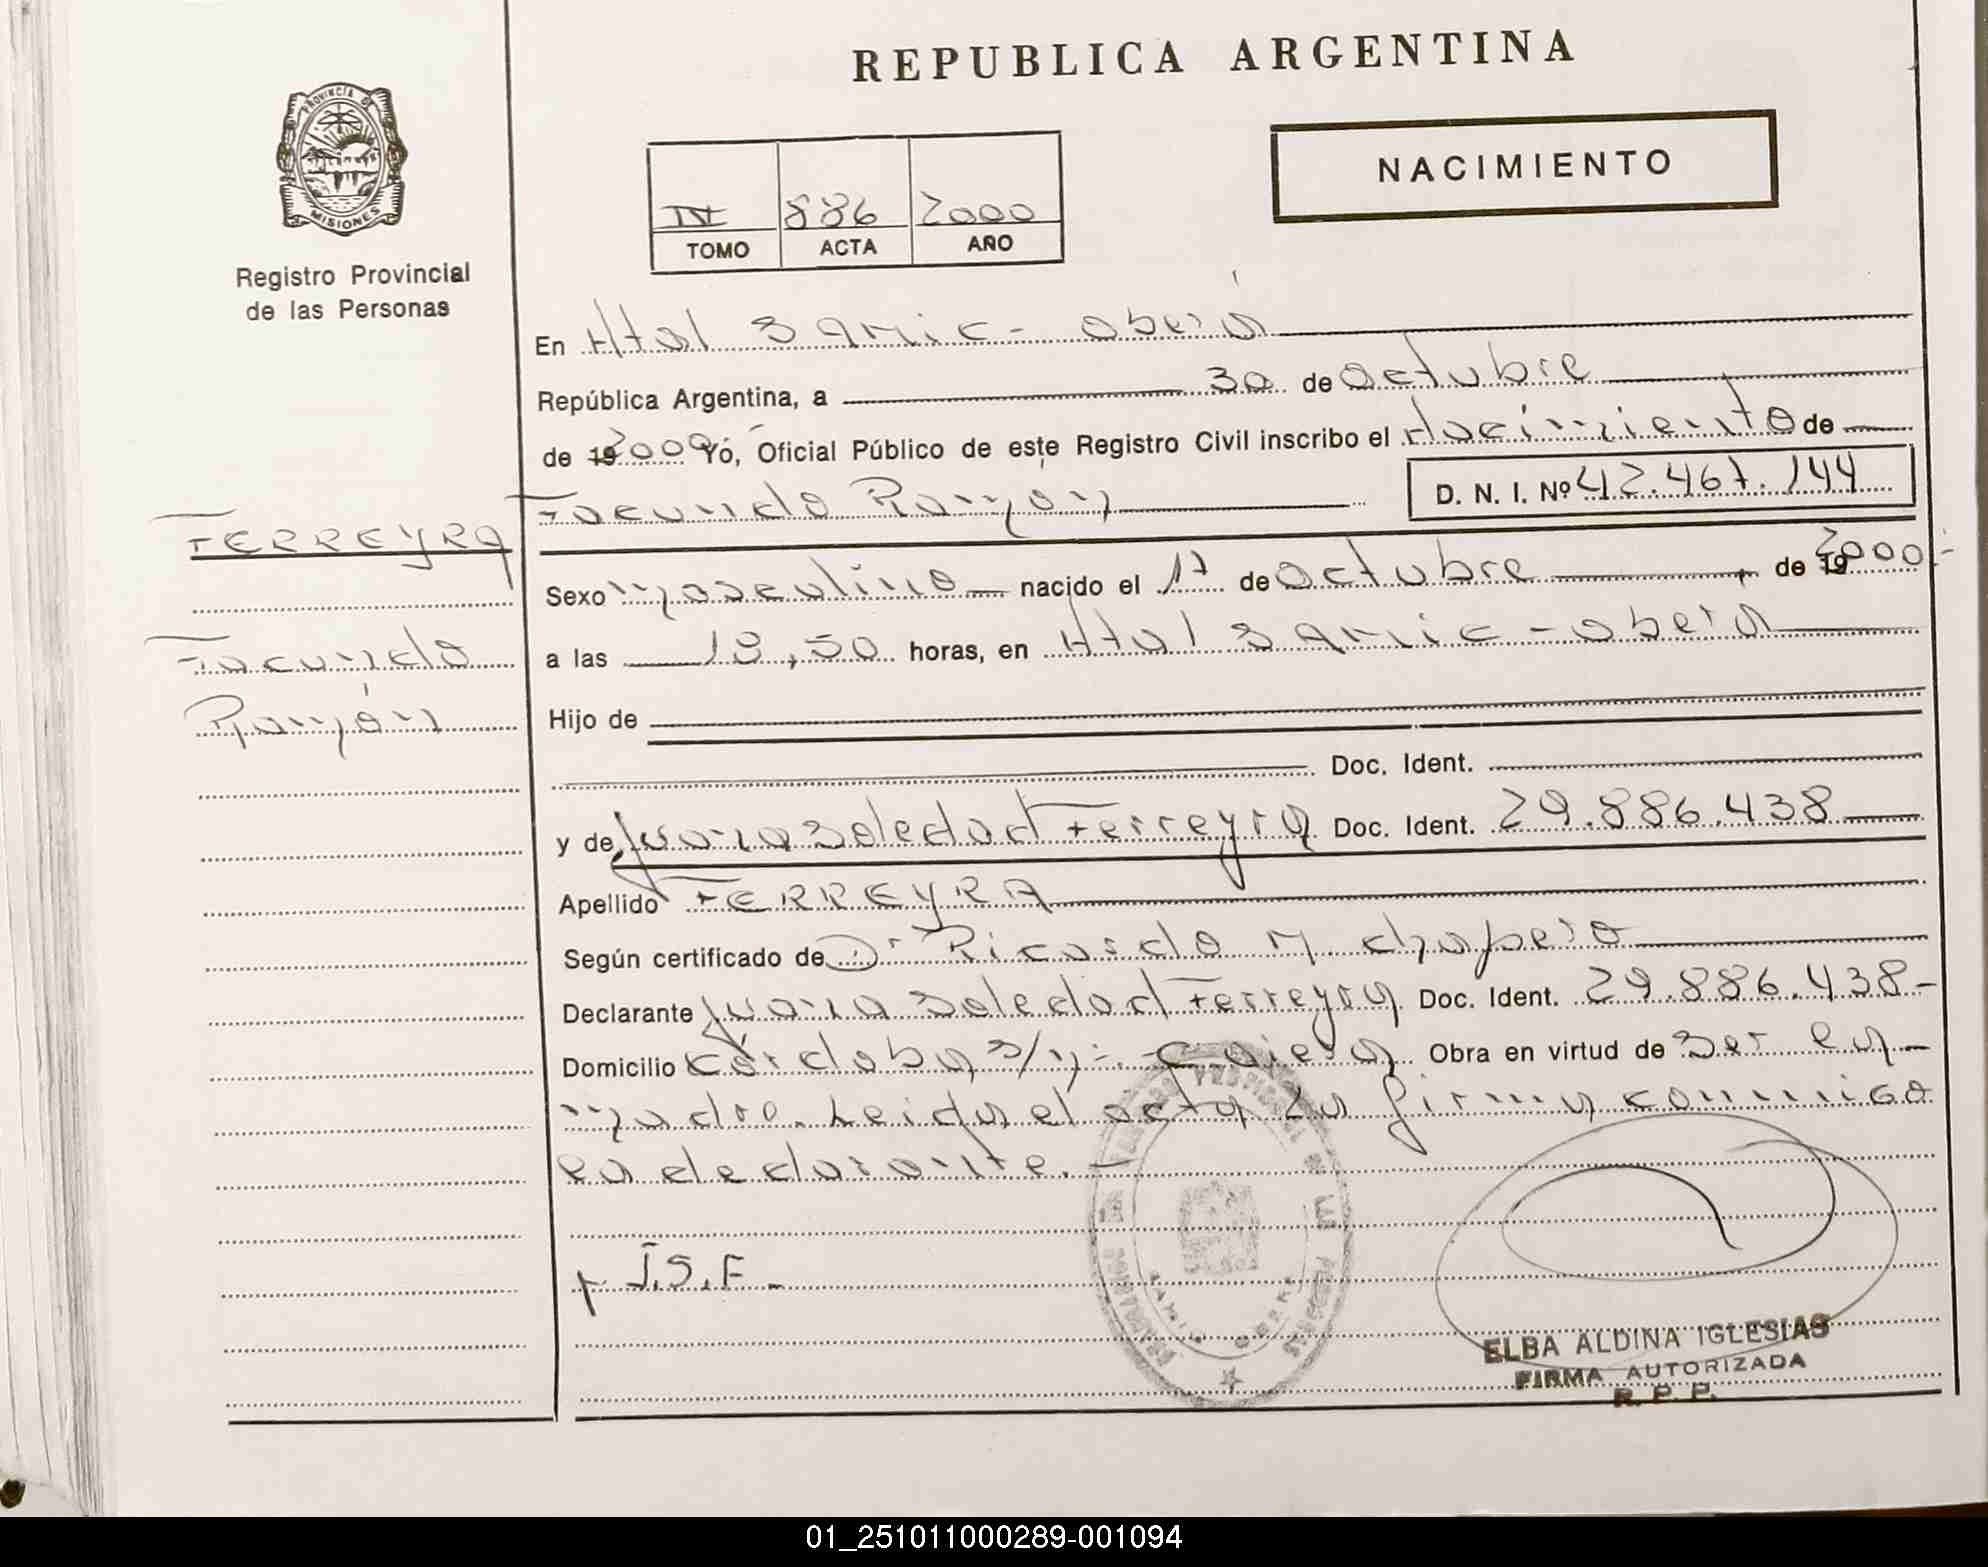 REPUBLICA ARGENTINA
PROVINCIA DE
MISIONES
Registro Provincial
de las Personas
NACIMIENTO
IV 886 2000
TOMO ACTA AÑO
En Htal SAMIC - Oberá
República Argentina, a 30 de Octubre
de 19 2000 Yo, Oficial Público de este Registro Civil inscribo el Nacimiento de
Facundo Ramón D. N. I. Nº 42.467.144
FERREYRA
Facundo
Ramón
Sexo Masculino nacido el 17 de Octubre, de 19 2000.-
a las 18,50 horas, en Htal SAMIC - Oberá
Hijo de
Doc. Ident.
y de Juana Soledad Ferreyra Doc. Ident. 29.886.438
Apellido FERREYRA
Según certificado de Dr Ricardo M
Declarante Juana Soledad Ferreyra Doc. Ident. 29.886.438-
Domicilio Córdoba s/n Obra en virtud de Ser la
madre. Leida el acta la firma conmigo
la declarante.-
J.S.F-
ELBA ALDINA IGLESIAS
FIRMA AUTORIZADA
R. P. P.
01_251011000289-001094